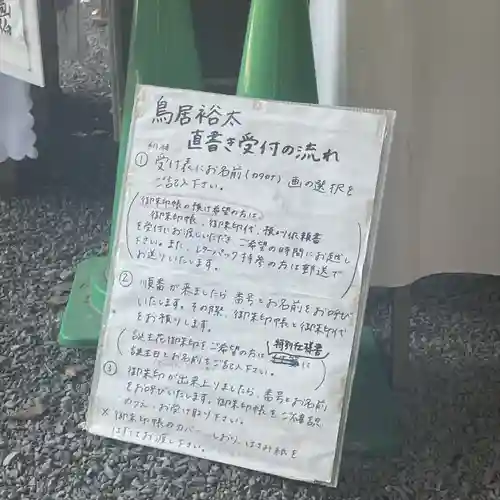 鳥居裕太
直書き受付の流れ
① 受付表にお名前(カタカナ) 画の選択を
ご記入下さい。
御朱印帳の預け希望の方は、
御朱印帳、御朱印代、預り依頼書
を受付にお渡しいただき、ご希望の時間にお越し
下さい。また、レターパック持参の方は郵送で
お送りいたします。
② 順番が来ましたら 番号とお名前をお呼び
いたします。その際、御朱印帳と御朱印代
をお預りします。
誕生花御朱印をご希望の方は 特別依頼書 に
誕生日とお名前をご記入下さい。
③ 御朱印が出来上りましたら、番号とお名前
をお呼びいたします。御朱印帳をご確認
のうえ、お受け取り下さい。
× 御朱印帳のカバー、しおり、はさみ紙を
はずしてお渡し下さい。